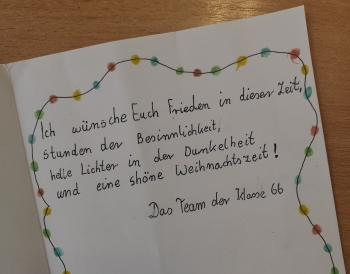 Ich wünsche Euch Frieden in dieser Zeit,
stunden der Besinnlichkeit,
helle Lichter in der Dunkelheit
und eine shöne Weihnachtszeit!
Das Team der Klasse 66